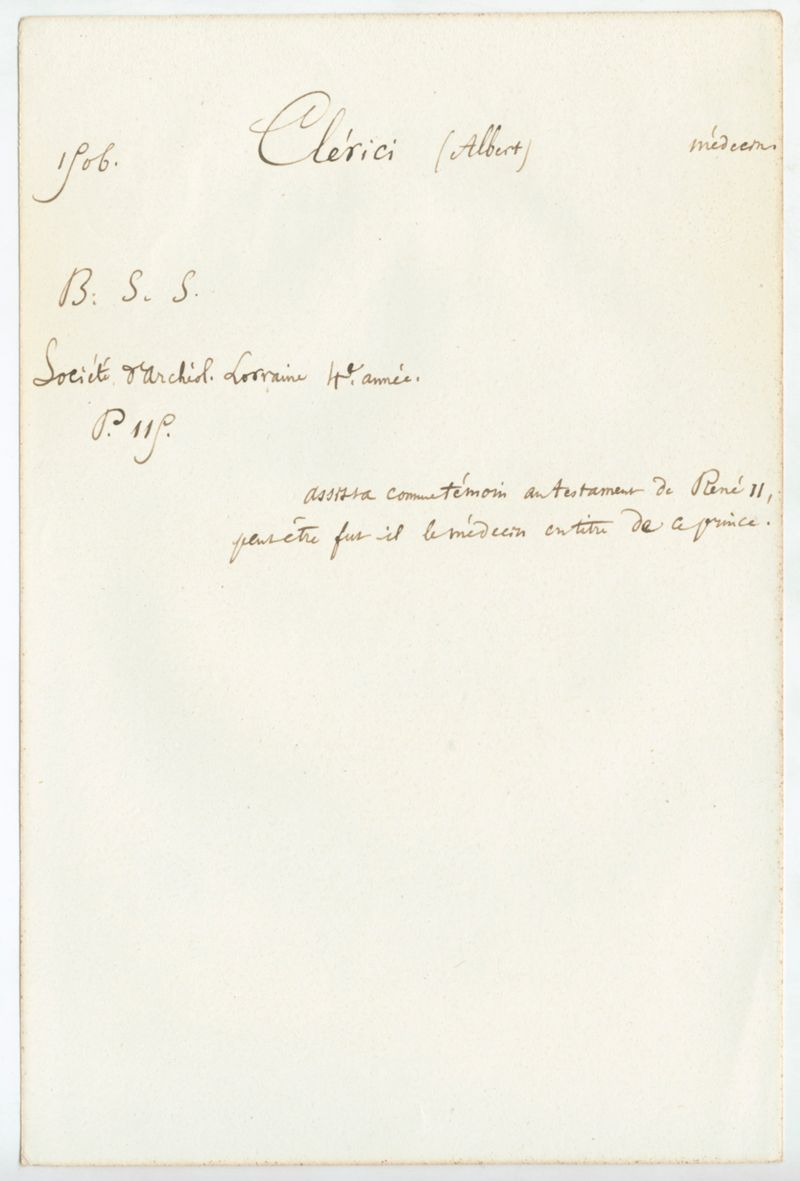 1506. Clérici (Albert) médecin
B. S. S.
Société d'archéol. Lorraine 4e. année.
P. 115.
assista comme témoin au testament de René II,
peut être fut-il le médecin en titre de ce prince.